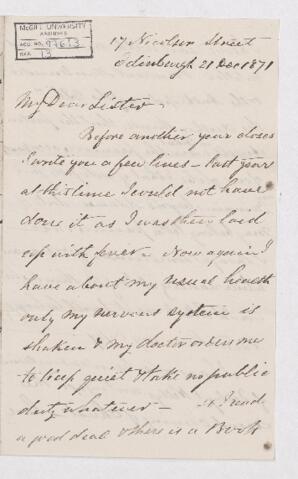 McGILL UNIVERSITY
ARCHIVES
ACC. NO.
REF. 13
17 Nicolson Street
Edinburgh 21 Dec 1871
My Dear Sister,
Before another year closes
I write you a few lines – last year
at this time I could not have
done it as I was then laid
up with fever – Now again I
have about my usual health
only my nervous system is
shaken & my doctor orders me
to keep quiet & take no public
duty whatever – I read
a good deal & there is a Book